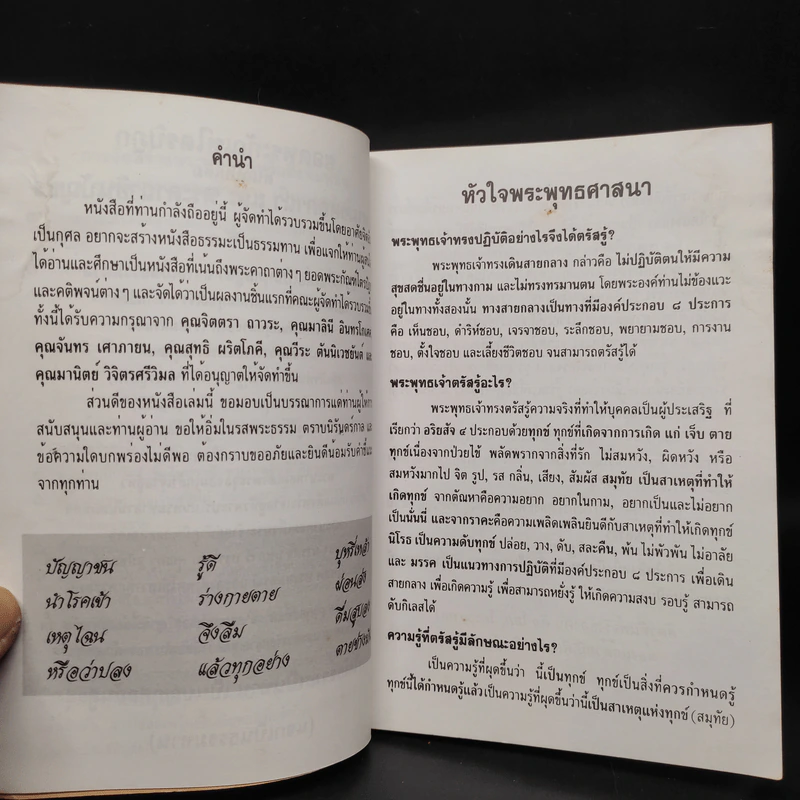 คำนำ
หนังสือที่ท่านกำลังถืออยู่นี้ ผู้จัดทำได้รวบรวมขึ้นโดยอาศัย
เป็นกุศล อยากจะสร้างหนังสือธรรมะเป็นธรรมทาน เพื่อแจกให้ท่าน
ได้อ่านและศึกษาเป็นหนังสือที่เน้นถึงพระคาถาต่างๆ ยอดพระกัณฑ์ไตรปิฎก
และคติพจน์ต่างๆ และจัดได้ว่าเป็นผลงานชิ้นแรกที่คณะผู้จัดทำได้รวบรวม
ทั้งนี้ได้รับความกรุณาจาก คุณจิตตรา ถาวระ, คุณมาลินี
คุณจันทร เศาภายน, คุณสุทธิ ผริตโภคี, คุณวีระ ตันนิเวชยันต์ และ
คุณมานิตย์ วิจิตรศรีวิมล ที่ได้อนุญาตให้จัดทำขึ้น
ส่วนดีของหนังสือเล่มนี้ ขอมอบเป็นบรรณาการแด่ท่านผู้ให้การ
สนับสนุนและท่านผู้อ่าน ขอให้อิ่มในรสพระธรรม ตราบนิรันดร์กาล และ
ข้อความใดบกพร่องไม่ดีพอ ต้องกราบขออภัยและยินดีน้อมรับคำชี้แนะ
จากทุกท่าน
ปัญญาชน รู้ดี บุหรี่เหล้า
นำโรคเข้า ร่างกายตาย ผ่อนส่ง
เหตุไฉน จึงลืม ดื่มสูบ
หรือว่าปลง แล้วทุกอย่าง ตายช่าง
หัวใจพระพุทธศาสนา
พระพุทธเจ้าทรงปฏิบัติอย่างไรจึงได้ตรัสรู้?
พระพุทธเจ้าทรงเดินสายกลาง กล่าวคือ ไม่ปฏิบัติตนให้มีความ
สุขสดชื่นอยู่ในทางกาม และไม่ทรงทรมานตน โดยพระองค์ท่านไม่ข้องแวะ
อยู่ในทางทั้งสองนั้น ทางสายกลางเป็นทางที่มีองค์ประกอบ ๘ ประการ
คือ เห็นชอบ, ดำริห์ชอบ, เจรจาชอบ, ระลึกชอบ, พยายามชอบ, การงาน
ชอบ, ตั้งใจชอบ และเลี้ยงชีวิตชอบ จนสามารถตรัสรู้ได้
พระพุทธเจ้าตรัสรู้อะไร?
พระพุทธเจ้าทรงตรัสรู้ความจริงที่ทำให้บุคคลเป็นผู้ประเสริฐ ที่
เรียกว่า อริยสัจ ๔ ประกอบด้วยทุกข์ ทุกข์ที่เกิดจากการเกิด แก่ เจ็บ ตาย
ทุกข์เนื่องจากป่วยไข้ พลัดพรากจากสิ่งที่รัก ไม่สมหวัง, ผิดหวัง หรือ
สมหวังมากไป จิต รูป, รส กลิ่น, เสียง, สัมผัส สมุทัย เป็นสาเหตุที่ทำให้
เกิดทุกข์ จากตัณหาคือความอยาก อยากในกาม, อยากเป็นและไม่อยาก
เป็นนั่นนี่ และจากราคะคือความเพลิดเพลินยินดีกับสาเหตุที่ทำให้เกิดทุกข์
นิโรธ เป็นความดับทุกข์ ปล่อย, วาง, ดับ, สละคืน, พ้น ไม่พัวพัน ไม่อาลัย
และ มรรค เป็นแนวทางการปฏิบัติที่มีองค์ประกอบ ๘ ประการ เพื่อเดิน
สายกลาง เพื่อเกิดความรู้ เพื่อสามารถหยั่งรู้ ให้เกิดความสงบ รอบรู้ สามารถ
ดับกิเลสได้
ความรู้ที่ตรัสรู้มีลักษณะอย่างไร?
เป็นความรู้ที่ผุดขึ้นว่า นี้เป็นทุกข์ ทุกข์เป็นสิ่งที่ควรกำหนดรู้
ทุกข์นี้ได้กำหนดรู้แล้วเป็นความรู้ที่ผุดขึ้นว่านี้เป็นสาเหตุแห่งทุกข์ (สมุทัย)